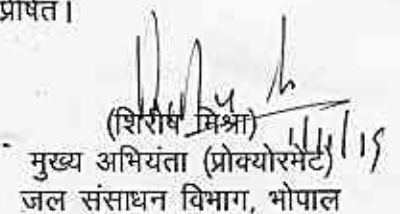 प्रेषित।
(शिरीष मिश्रा)
मुख्य अभियंता (प्रोक्योरमेंट)
जल संसाधन विभाग, भोपाल